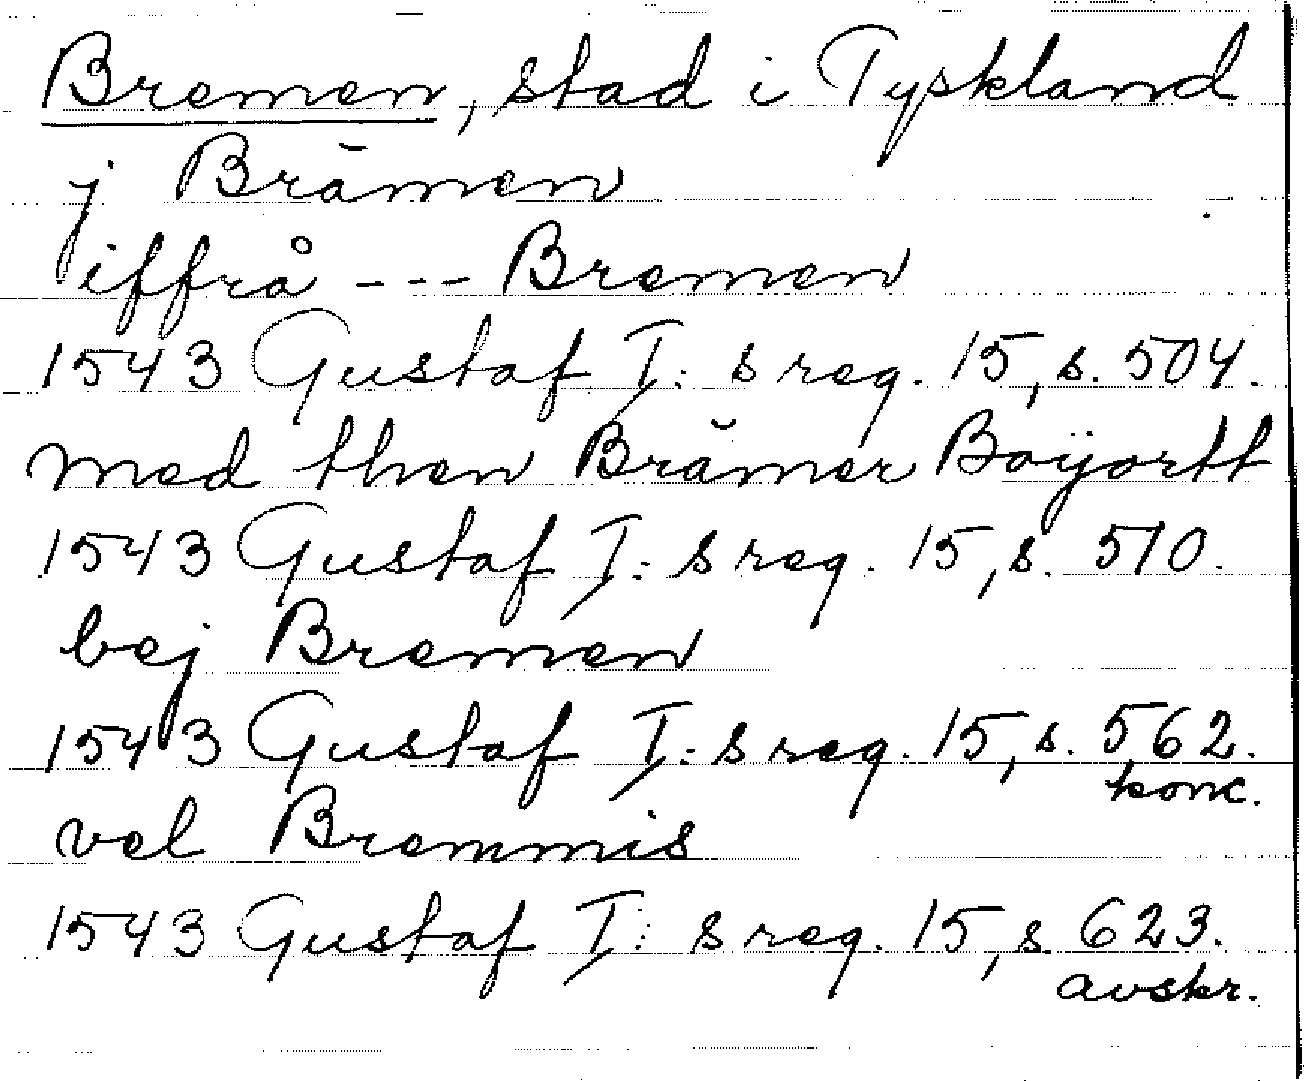 Bremen, stad i Tyskland
j Brämen
iffrå --- Bremen
1543 Gustaf I:s reg. 15, s. 504.
med then Brämer Boÿortt
1543 Gustaf I:s reg. 15, s. 510.
bej Bremen
1543 Gustaf I:s reg. 15, s. 562.
konc.
vel Bremmis
1543 Gustaf I:s reg. 15, s. 623.
avskr.